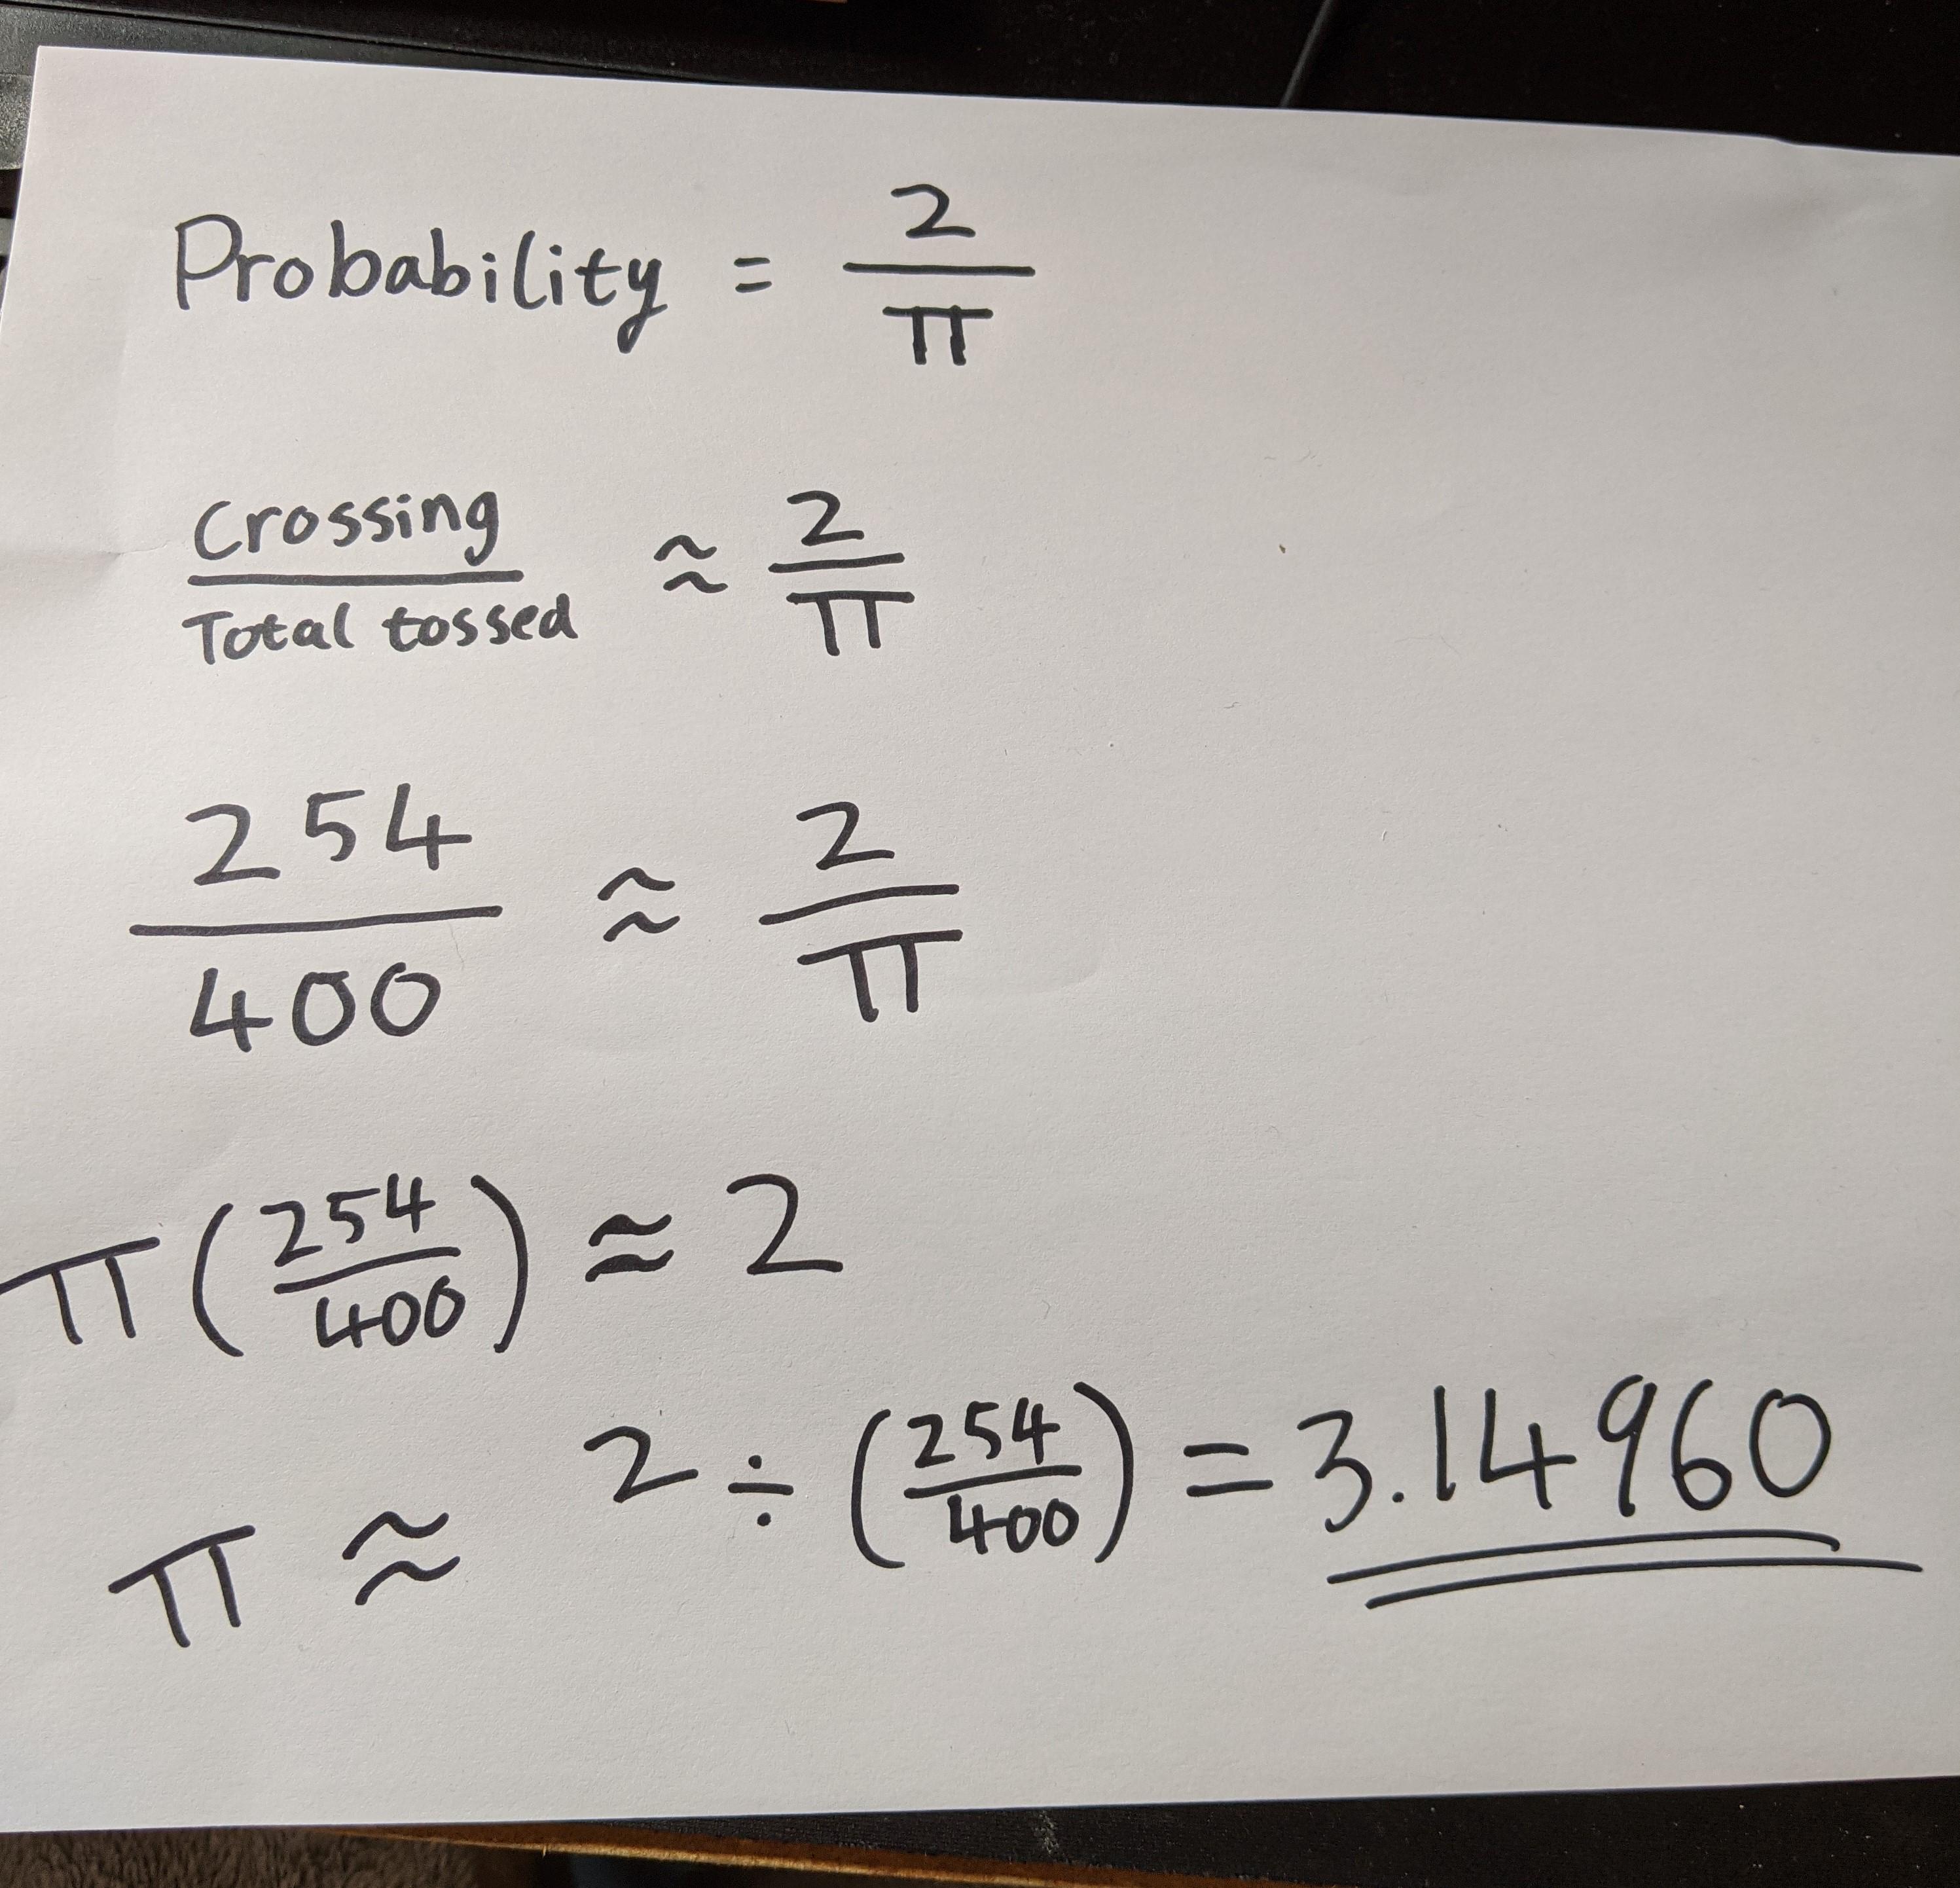 Probability = 2/π
Crossing/Total tossed ≈ 2/π
254/400 ≈ 2/π
π(254/400) ≈ 2
π ≈ 2 ÷ (254/400) = 3.14960